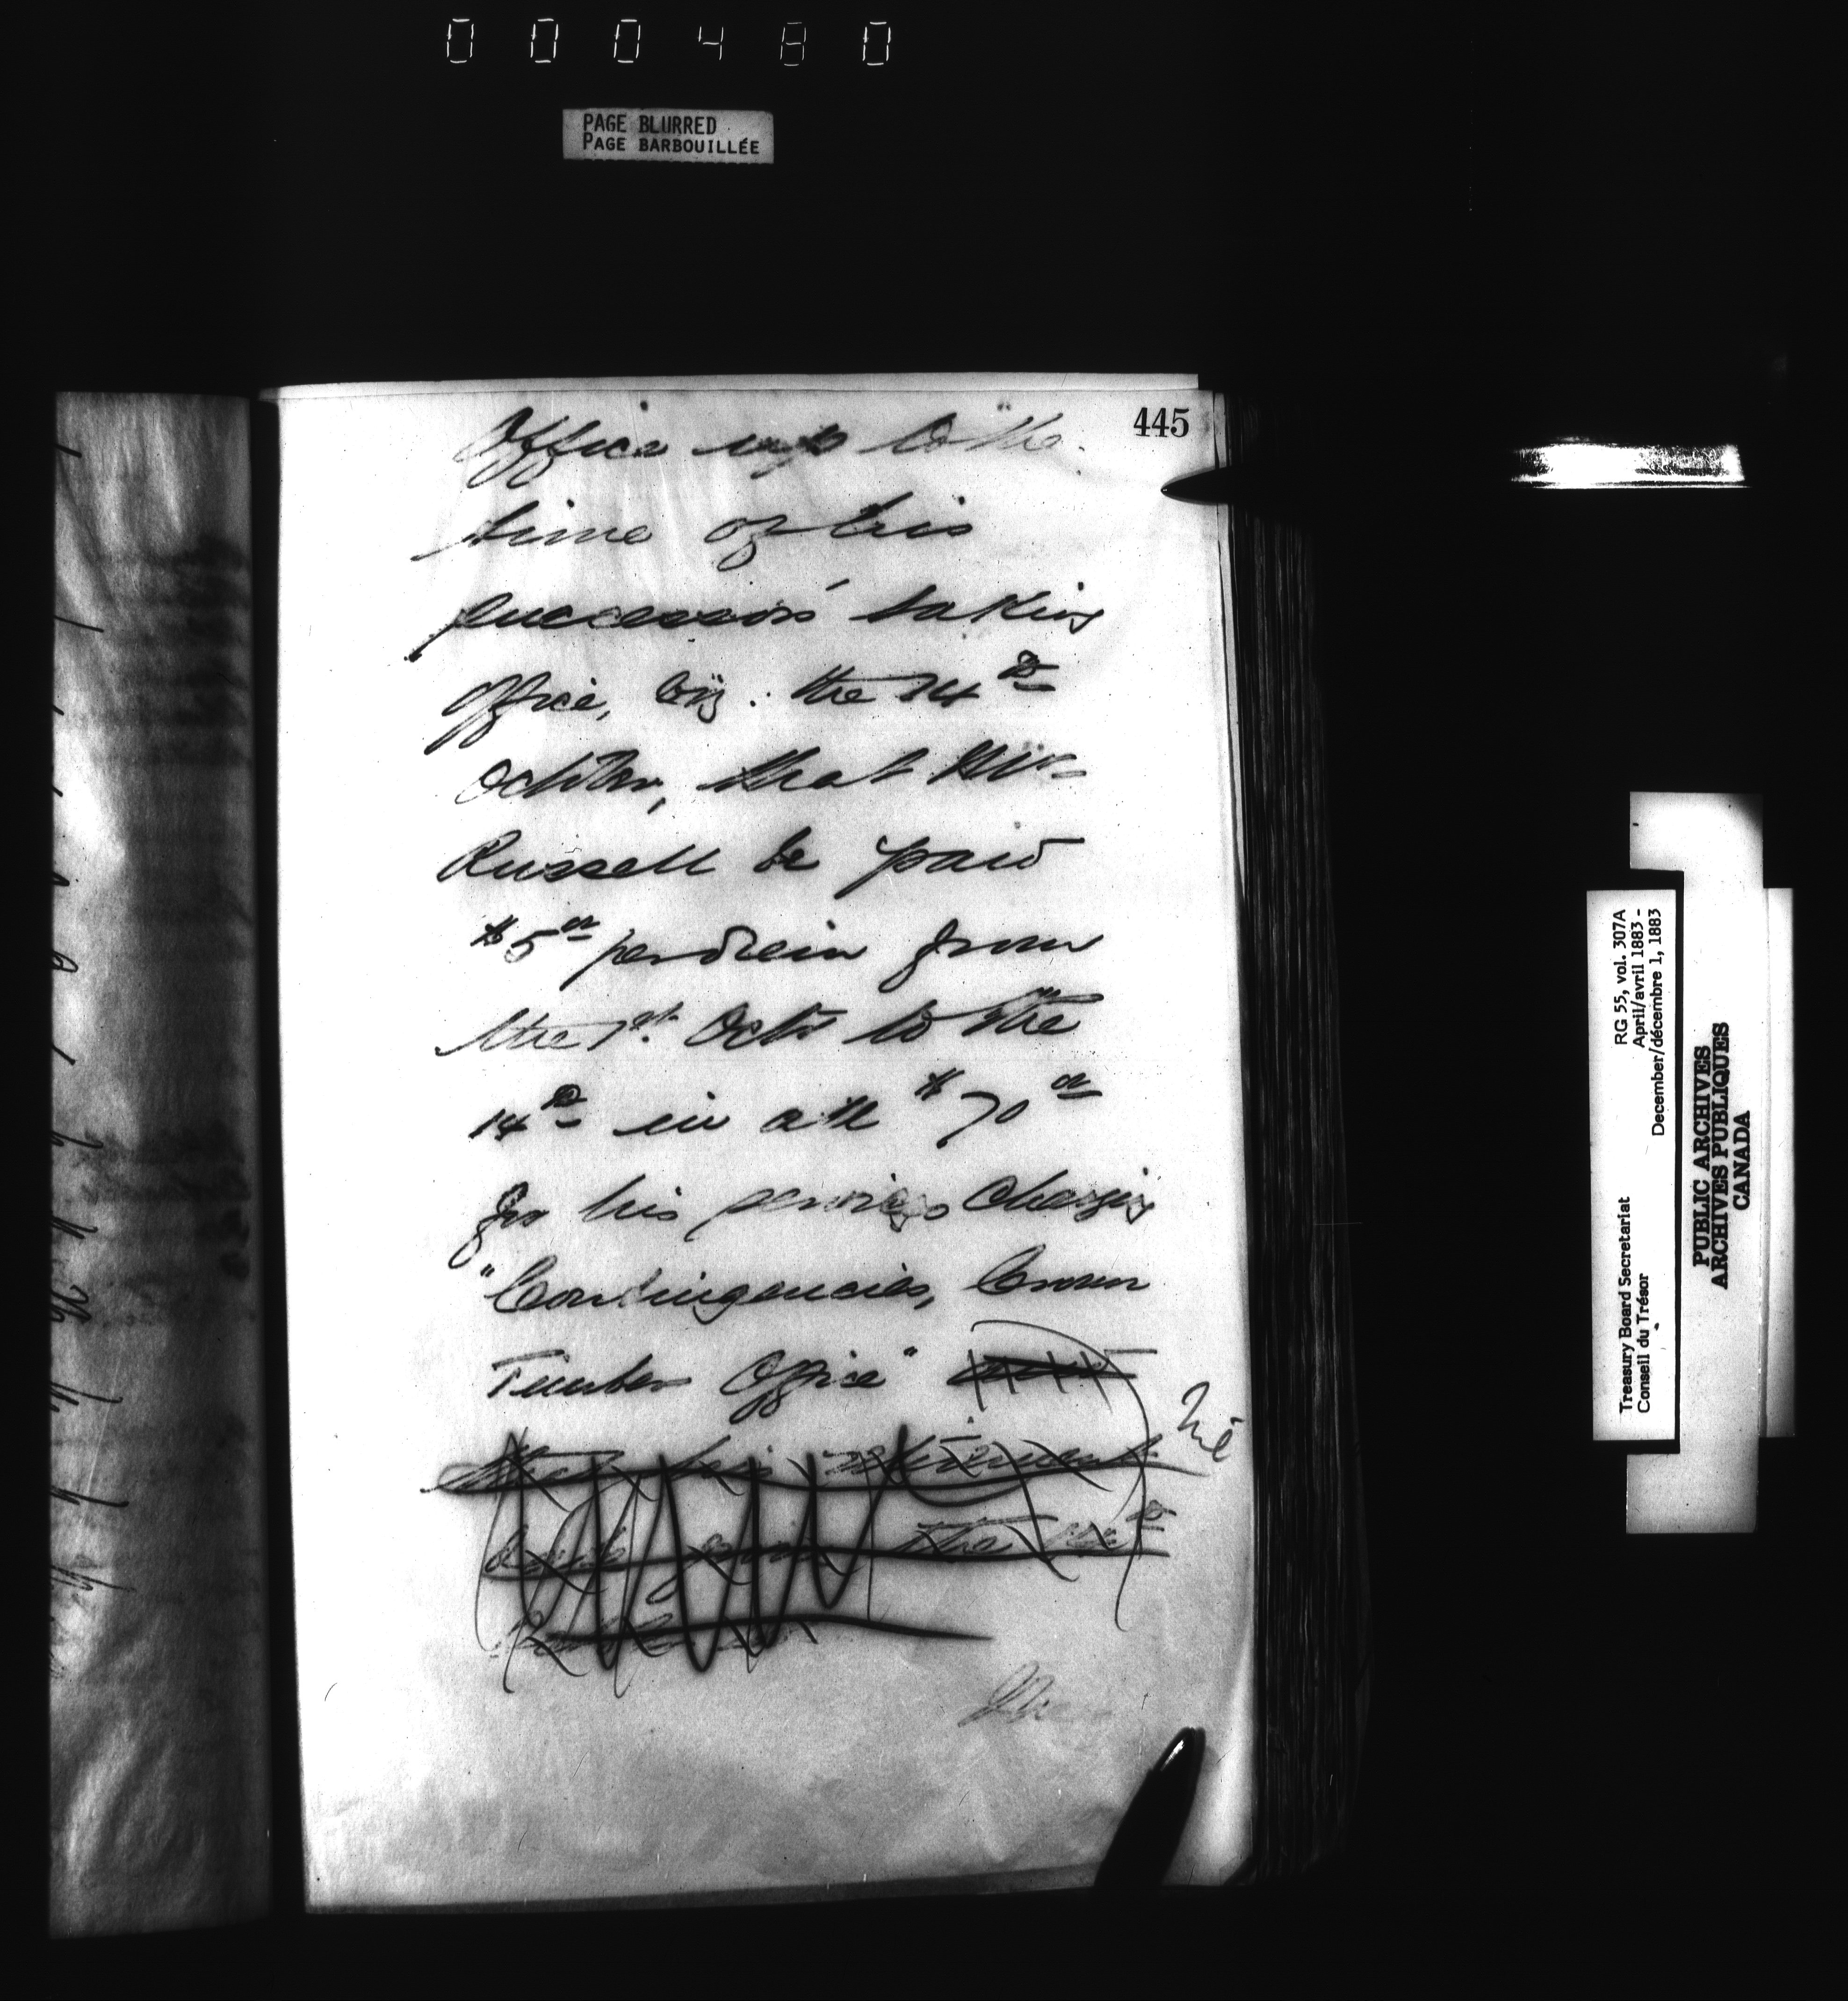 000480
PAGE BLURRED
PAGE BARBOUILLÉE
445
Office up to the
time of his
successors' taking
office, viz: the 14th
October, that Mr.
Russell be paid
$5.00 per diem from
the 1st. Octr to the
14th in all $70.00
for his services charging
"Contingencies, Crown
Timber Office"
that his retirement
date from the 14th
The
RG 55, vol. 307A
April/avril 1883 -
December/décembre 1, 1883
Treasury Board Secretariat
Conseil du Trésor
PUBLIC ARCHIVES
ARCHIVES PUBLIQUES
CANADA